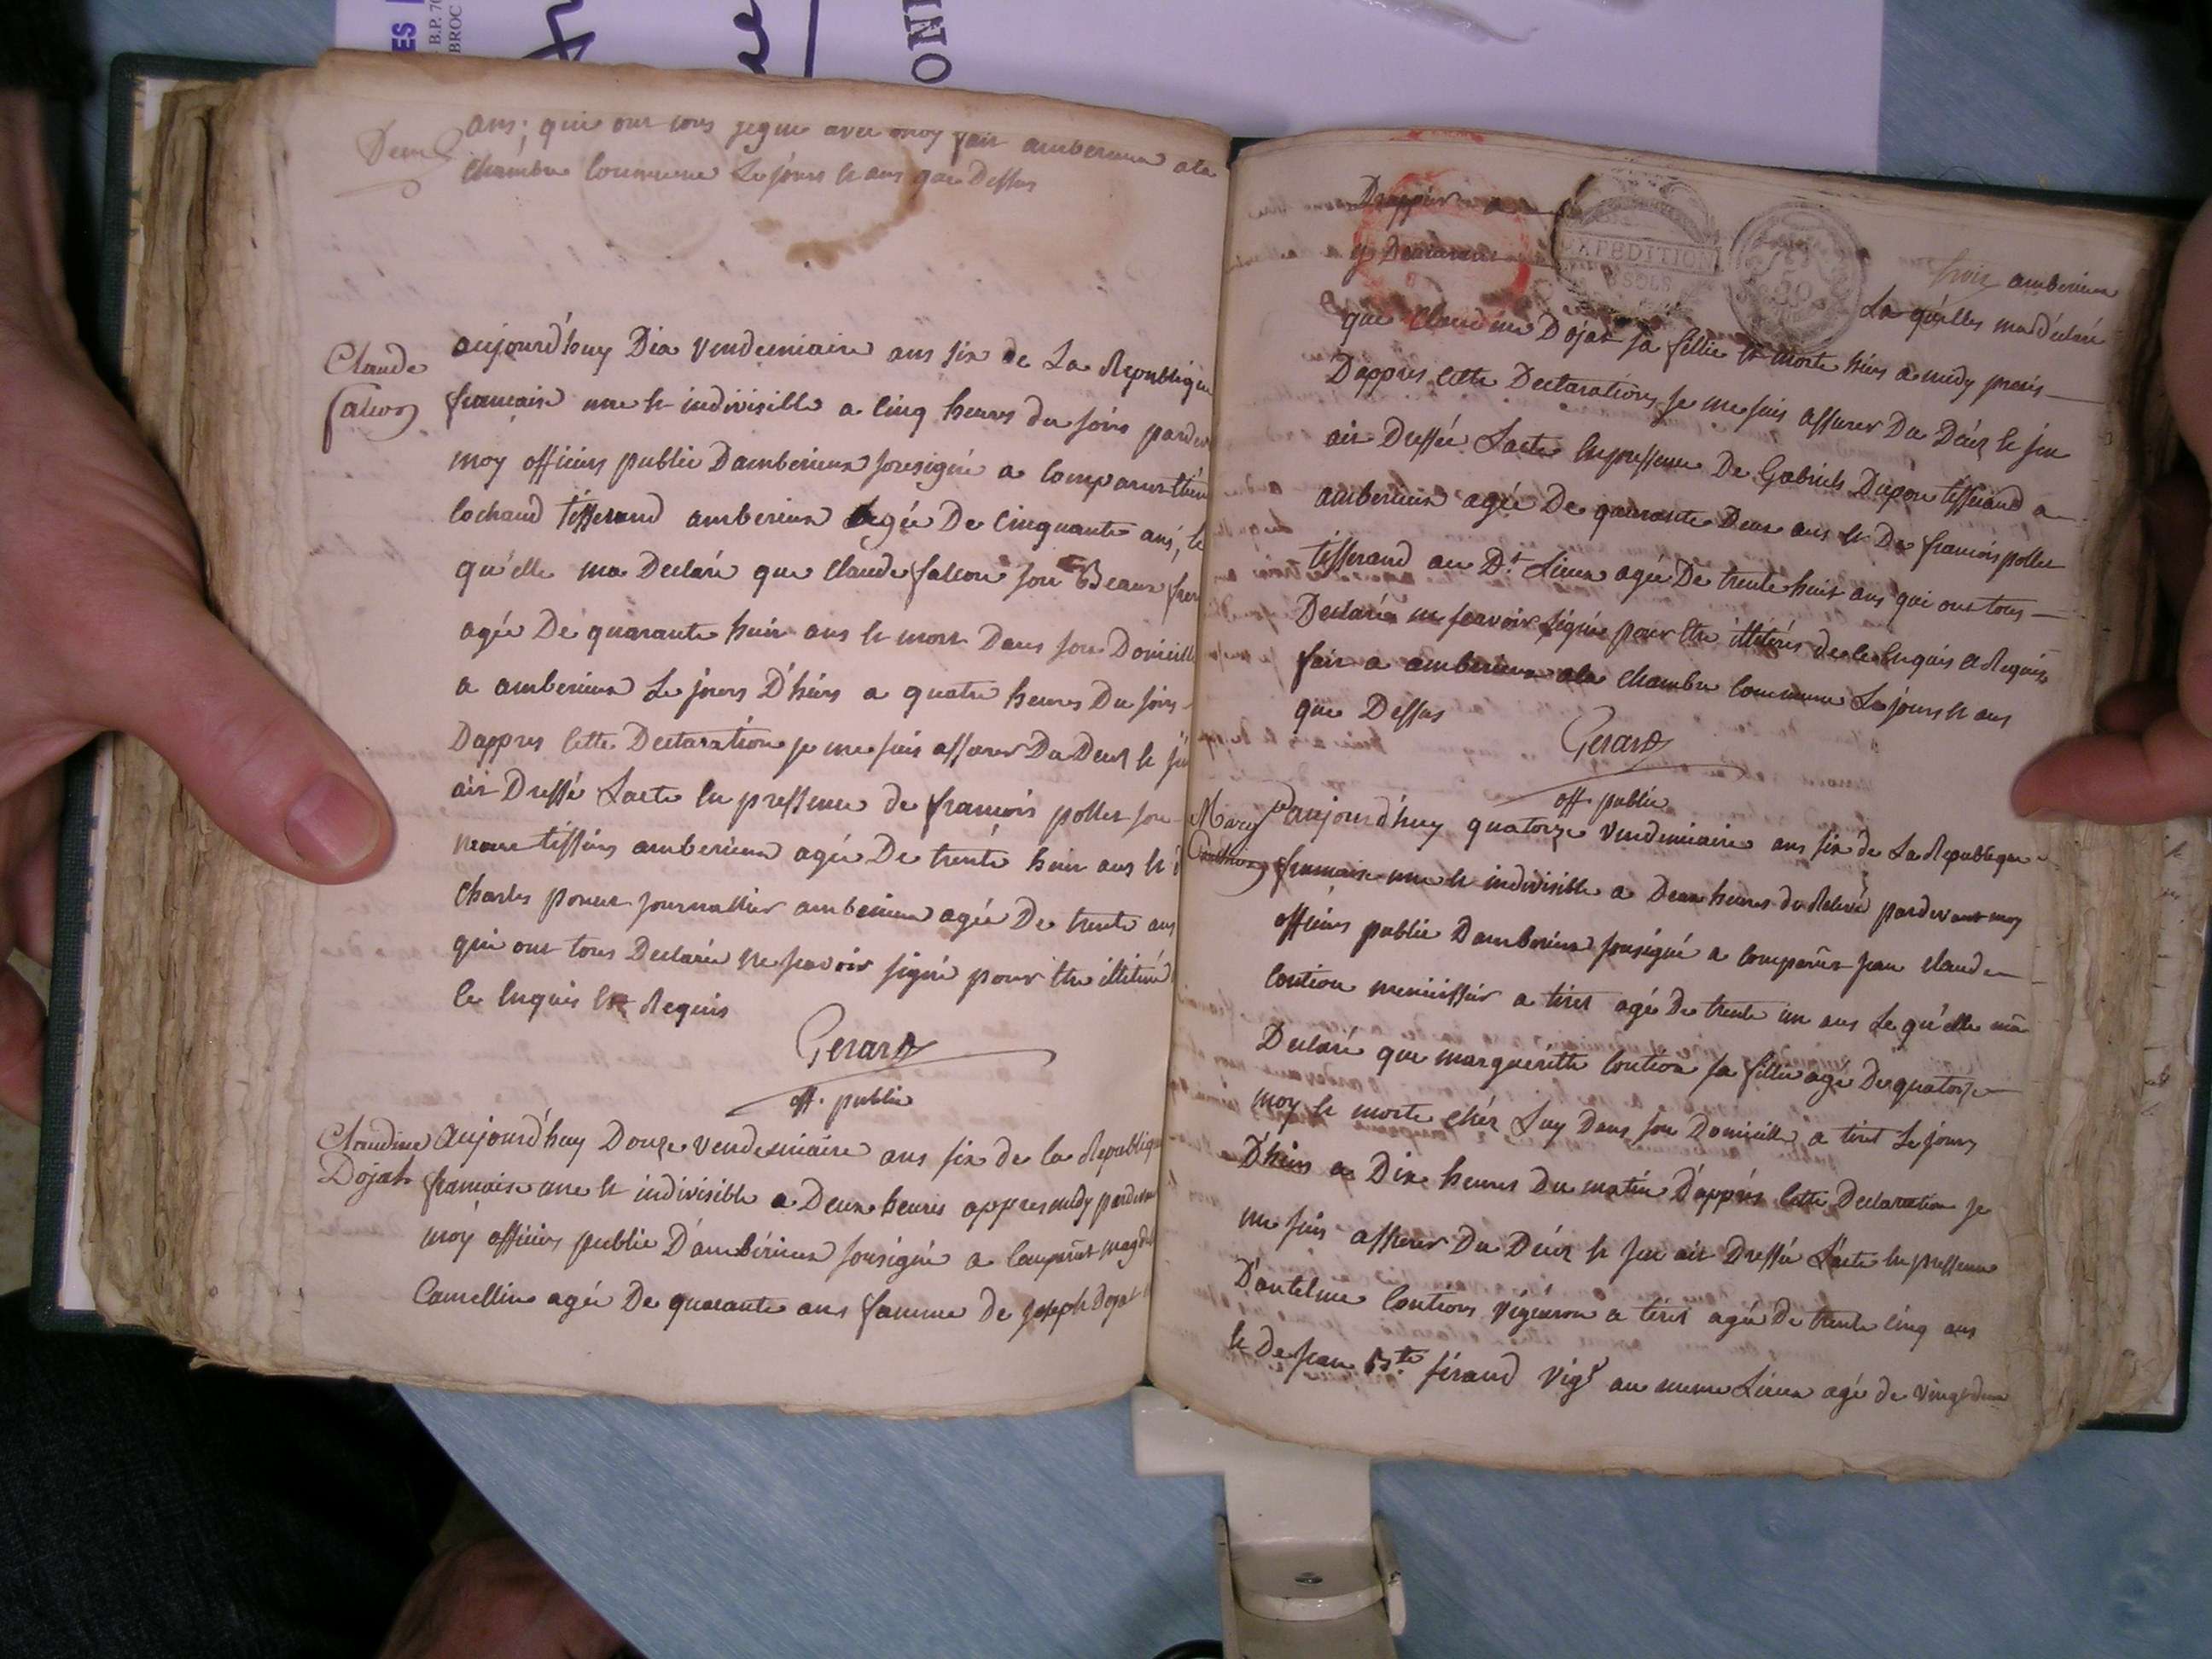 ES
B.P. 70
BROC
ON
Deux
ans; qui ont tous signe avec moy fait amberieux a la
chambre Commune Le jours et ans que Dessus
Claude
falcoz
aujourd'huy Dix vendemiaire ans six de La Republique
francaise une et indivisible a Cinq heures du soirs parde
moy officiers public Damberieux sousigné a Comparus
Cochand tisserand amberieux agée De Cinquante ans, le
qu'elle ma Declaré que Claude falcon son Beaux frer
agée De quarante huit ans et mort Dans son Domicille
a amberieux Le jours D'hiers a quatre heures Du soirs
Dappres Cette Declaration je me suis assurer Du Deces et j'en
ait Dressé Lacte En pressence de francois pollet son
neveu tissiers amberieux agée De trente huit ans et d
Charles poncet journallier amberieux agée De trente ans
qui ont tous Declarée ne scavoir signé pour Etre illitéré
Ce Enquis Et Requis
Gerard
off. public
Claudine
Dojat
aujourd'huy Douze vendemiaire ans six de la Republique
francaise une et indivisible a Deux heures appres midy pardevan
moy officiers public D'ambérieux sousigné a Comparut magd
Camellin agée De quarante ans famme de joseph Dojat
Drappier a
y Demeurant
trois
amberieux
La quelles ma déclaré
que Claudine Dojat sa fillie et morte hiers a midy precis
Dappres Cette Declarations je me suis assurer Du Décez et j'en
ait Dressée Lacte En pressence De Gabriels Dupon tisserand a
amberieux agée De quarante Deux ans et De francois pollet
tisserand au D.t Lieux agée De trente huit ans qui ont tous
Declarée ne scavoir signée pour Etre illitérés de ce Enquis et Requis
fait a amberieux a la chambre Commune Le jours et ans
que Dessus
Gerard
off. public
aujourd'huy quatorze vendemiaire ans six de La Republique
francaise une et indivisible a Deux heures de Relevé pardevant moy
officiers public Damberieux sousigné a Comparut jean Claude
Contion menuissier a tiret agé De trente un ans Le qu'elle ma
Declaré que margueritte Contion sa fillie agé De quatorze
moy et morte chéz Luy Dans son Domicille a tiret Le jours
D'hiers a Dix heures Du matin D'apprés Cette Declaration je
me suis assurer Du Décez et j'en ait Dressé L'acte En pressence
D'antelme Contions vigneron a tiret agé De trente Cinq ans
et De jean B.te firand vig.r au meme Lieux agé de vingt deux
EXPEDITION
SOLS
50